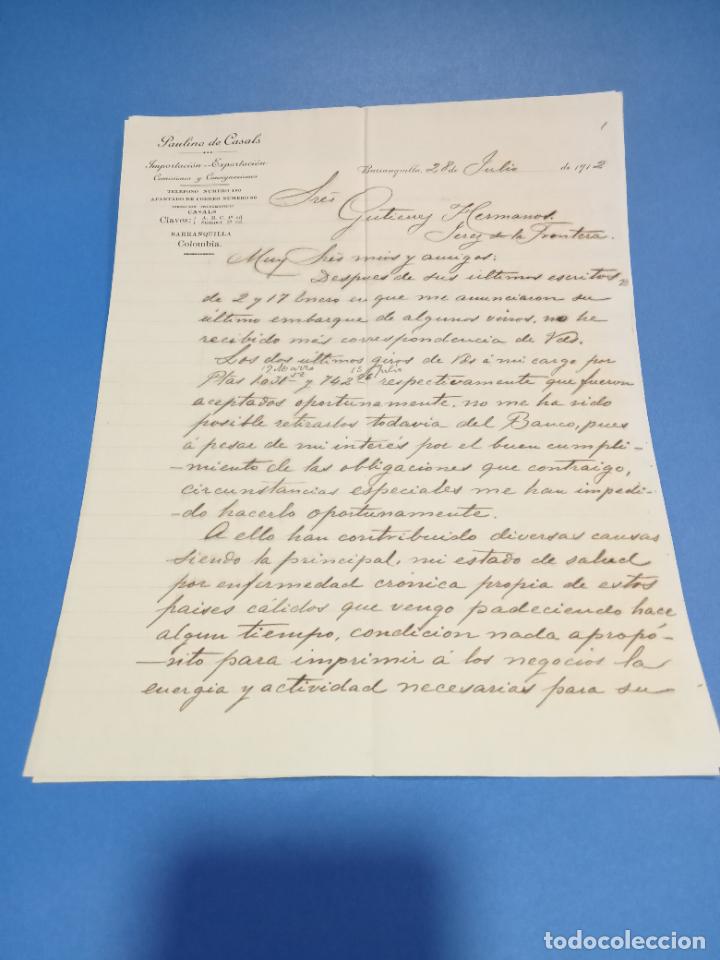 1
Paulino de Casals
Importación - Exportación
Comisiones y Consignaciones
TELEFONO NUMERO
APARTADO DE CORREO NUMERO
CASALS
Claves: A. B. C. 5ª ed.
BARRANQUILLA
Colombia.
Barranquilla, 28 de Julio de 1912
Sres
Gutierrez Hermanos.
Jerez de la Frontera.
Muy Sres mios y amigos:
Despues de sus ultimos escritos
de 2 y 17 Enero en que me anunciaron su
último embarque de algunos vinos, no he
recibido más correspondencia de Vds.
Los dos últimos giros de Vds á mi cargo por
Ptas y 742 respectivamente que fueron
aceptados oportunamente, no me ha sido
posible retirarlos todavia del Banco, pues
á pesar de mi interés por el buen cumpli-
-miento de las obligaciones que contraigo,
circunstancias especiales me han impedi-
-do hacerlo oportunamente.
A ello han contribuido diversas causas
siendo la principal, mi estado de salud
por enfermedad crónica propia de estos
paises cálidos que vengo padeciendo hace
algun tiempo, condicion nada apropó-
-sito para imprimir á los negocios la
energia y actividad necesarias para su
todocoleccion
todocoleccion.net